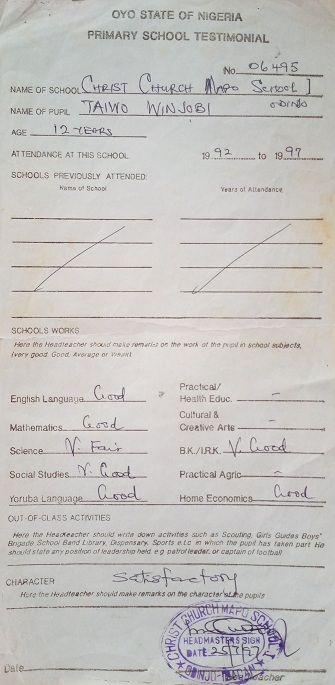 OYO STATE OF NIGERIA
PRIMARY SCHOOL TESTIMONIAL
No 06495
NAME OF SCHOOL CHRIST CHURCH MAPO SCHOOL I
ODINJO
NAME OF PUPIL TAIWO WINJOBI
AGE 12 YEARS
ATTENDANCE AT THIS SCHOOL 1992 to 1997
SCHOOLS PREVIOUSLY ATTENDED:
Name of School Years of Attendance
SCHOOLS WORKS
Here the Headteacher should make remarks on the work of the pupil in school subjects,
(very good. Good. Average or Weak)
English Language Good Practical/
Health Educ. –
Mathematics Good Cultural &
Creative Arts –
Science V. Fair B.K./I.R.K. V. Good
Social Studies V. Good Practical Agric –
Yoruba Language Good Home Economics Good
OUT-OF-CLASS ACTIVITIES
Here the Headteacher should write down activities such as Scouting, Girls Guides Boys'
Brigade School Band Library, Dispensary, Sports e.t.c in which the pupil has taken part. He
should state any position of leadership held. e.g patrol leader, or captain of football
CHARACTER Satisfactory
Here the Headteacher should make remarks on the character of the pupils
CHRIST CHURCH MAPO SCHOOL I
HEADMASTERS SIGN
DATE 25/7/97
ODINJO-IBADAN
Date Headteacher